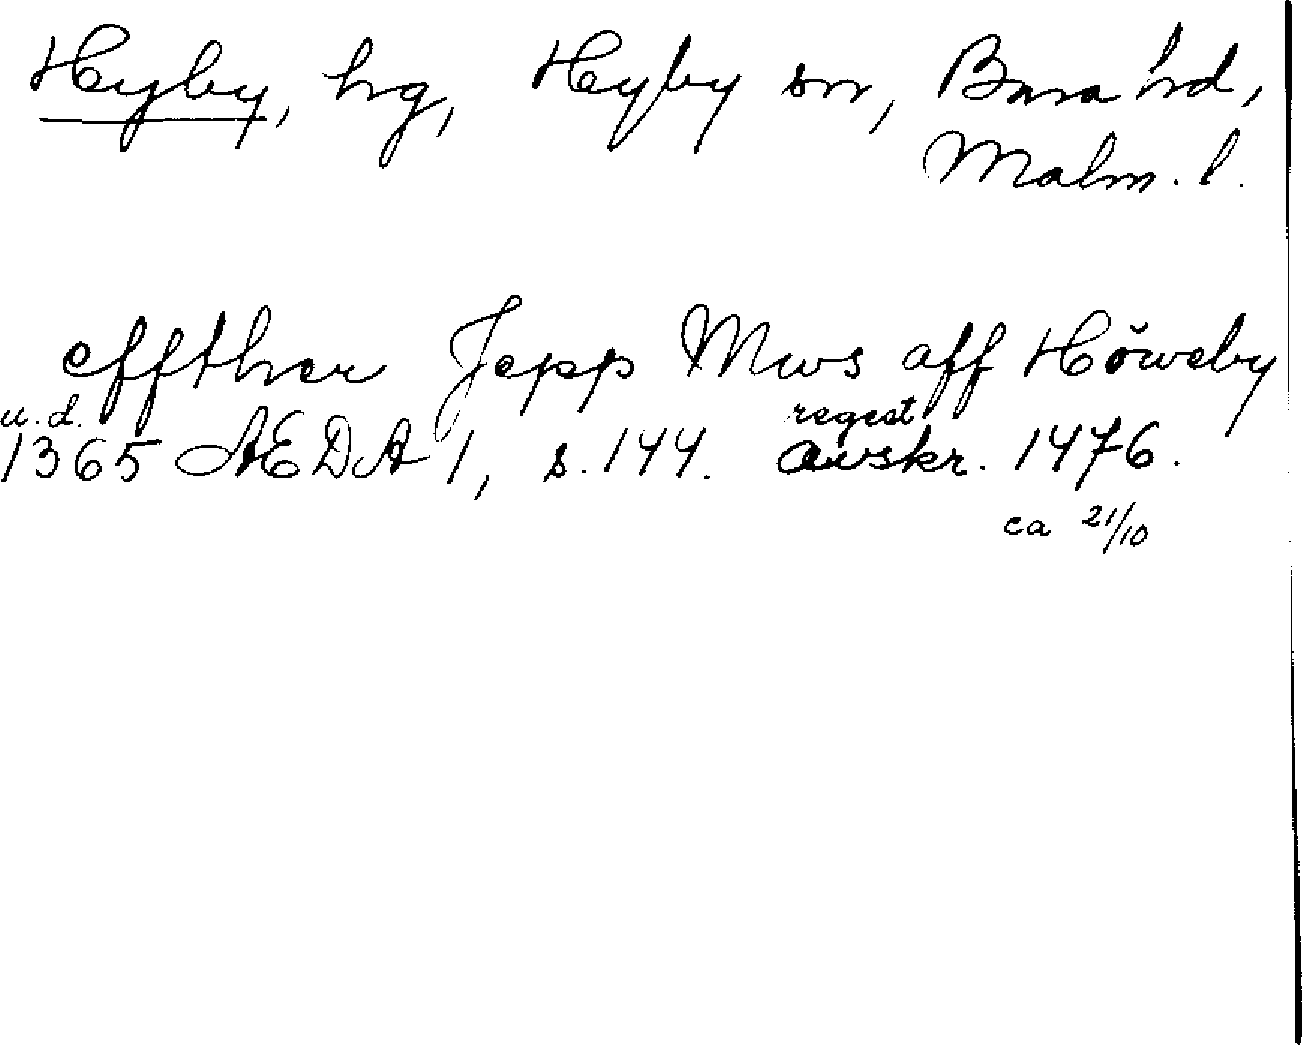 Hyby, hg, Hyby sn, Bara hd,
Malm. l.
effther Jepp Mws aff Höweby
u.d. regest
1365 ÆDA 1, s. 144. avskr. 1476.
ca 21/10